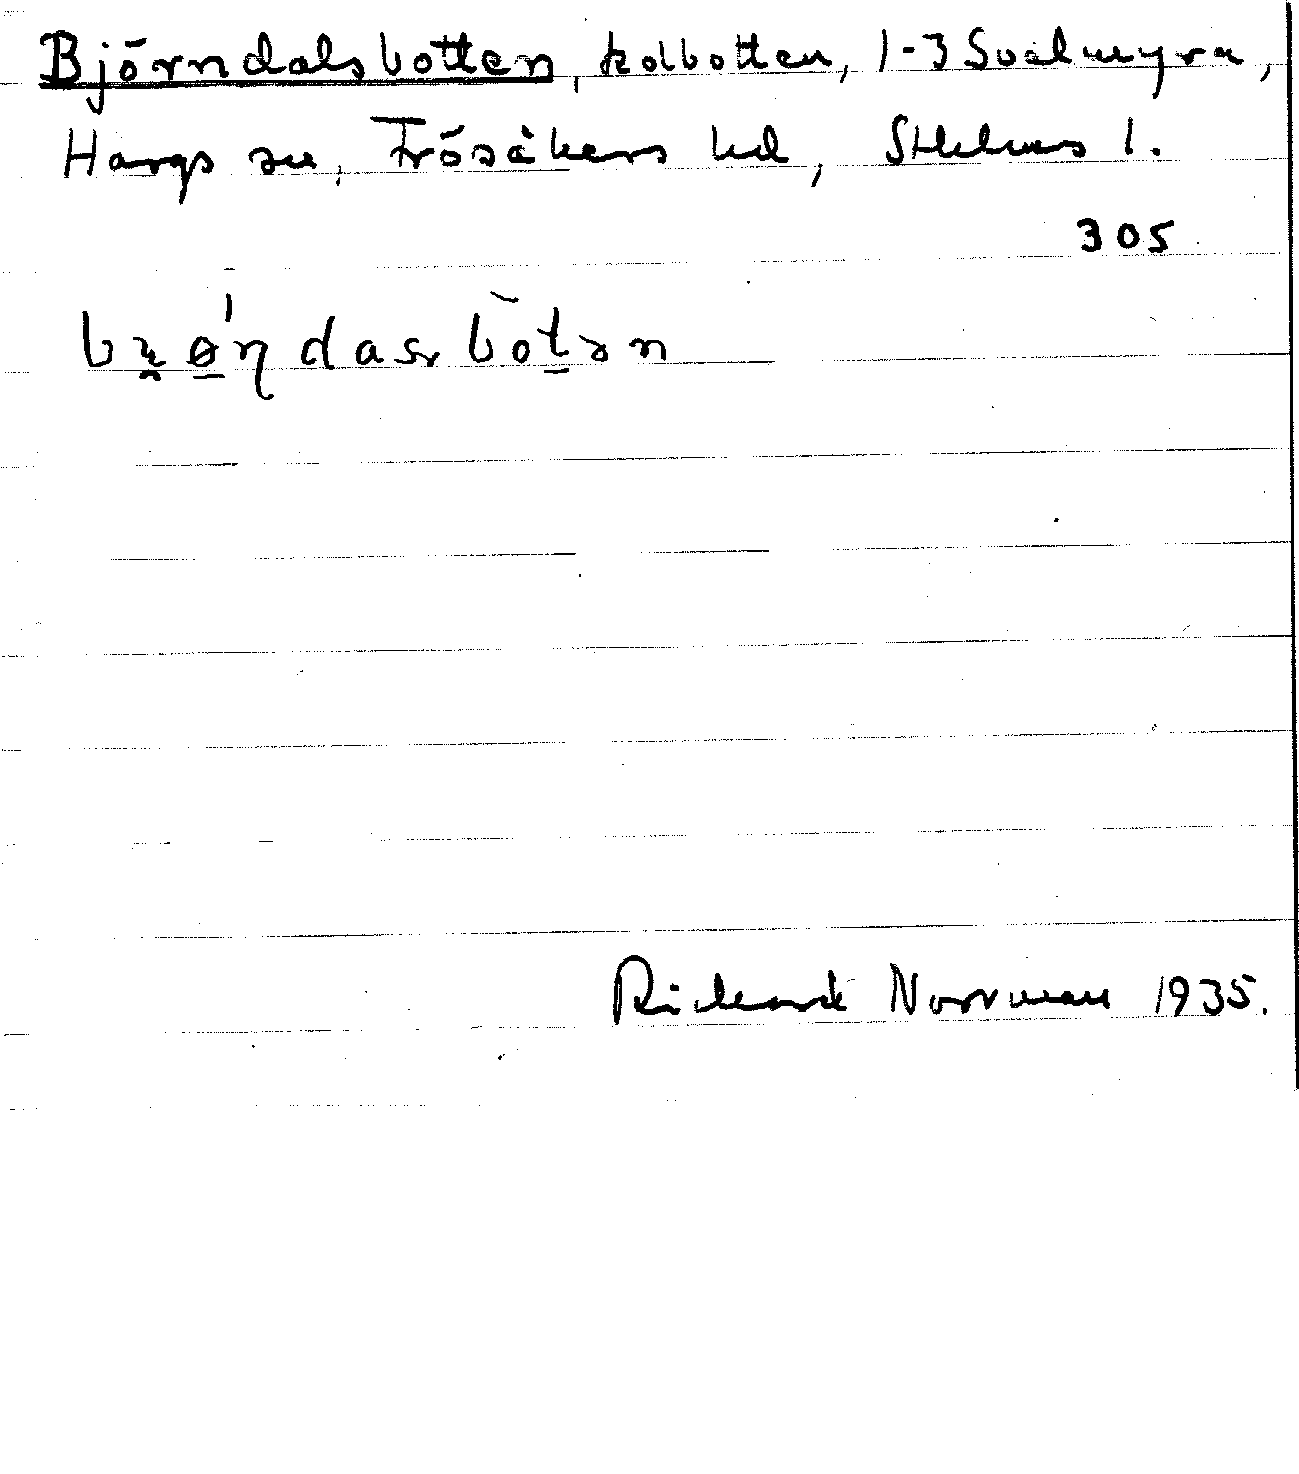 Björndalsbotten, kolbotten, 1-3 Svalmyra,
Hargs sn, Frösåkers hd, Sthlms l.
305
Rickard Norrman 1935.